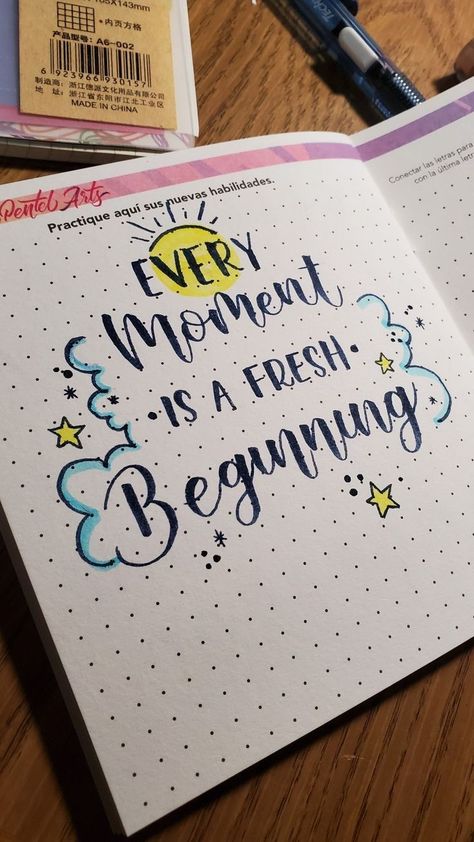 105X143mm
•内页方格
产品型号: A6-002
6 923966 930157
制造商: 浙江德派文化用品有限公司
地 址: 浙江省东阳市江北工业区
MADE IN CHINA
Pentel Arts
Practique aquí sus nuevas habilidades.
EVERY
Moment
•IS A FRESH•
Beginning
Conectar las letras para
con la última